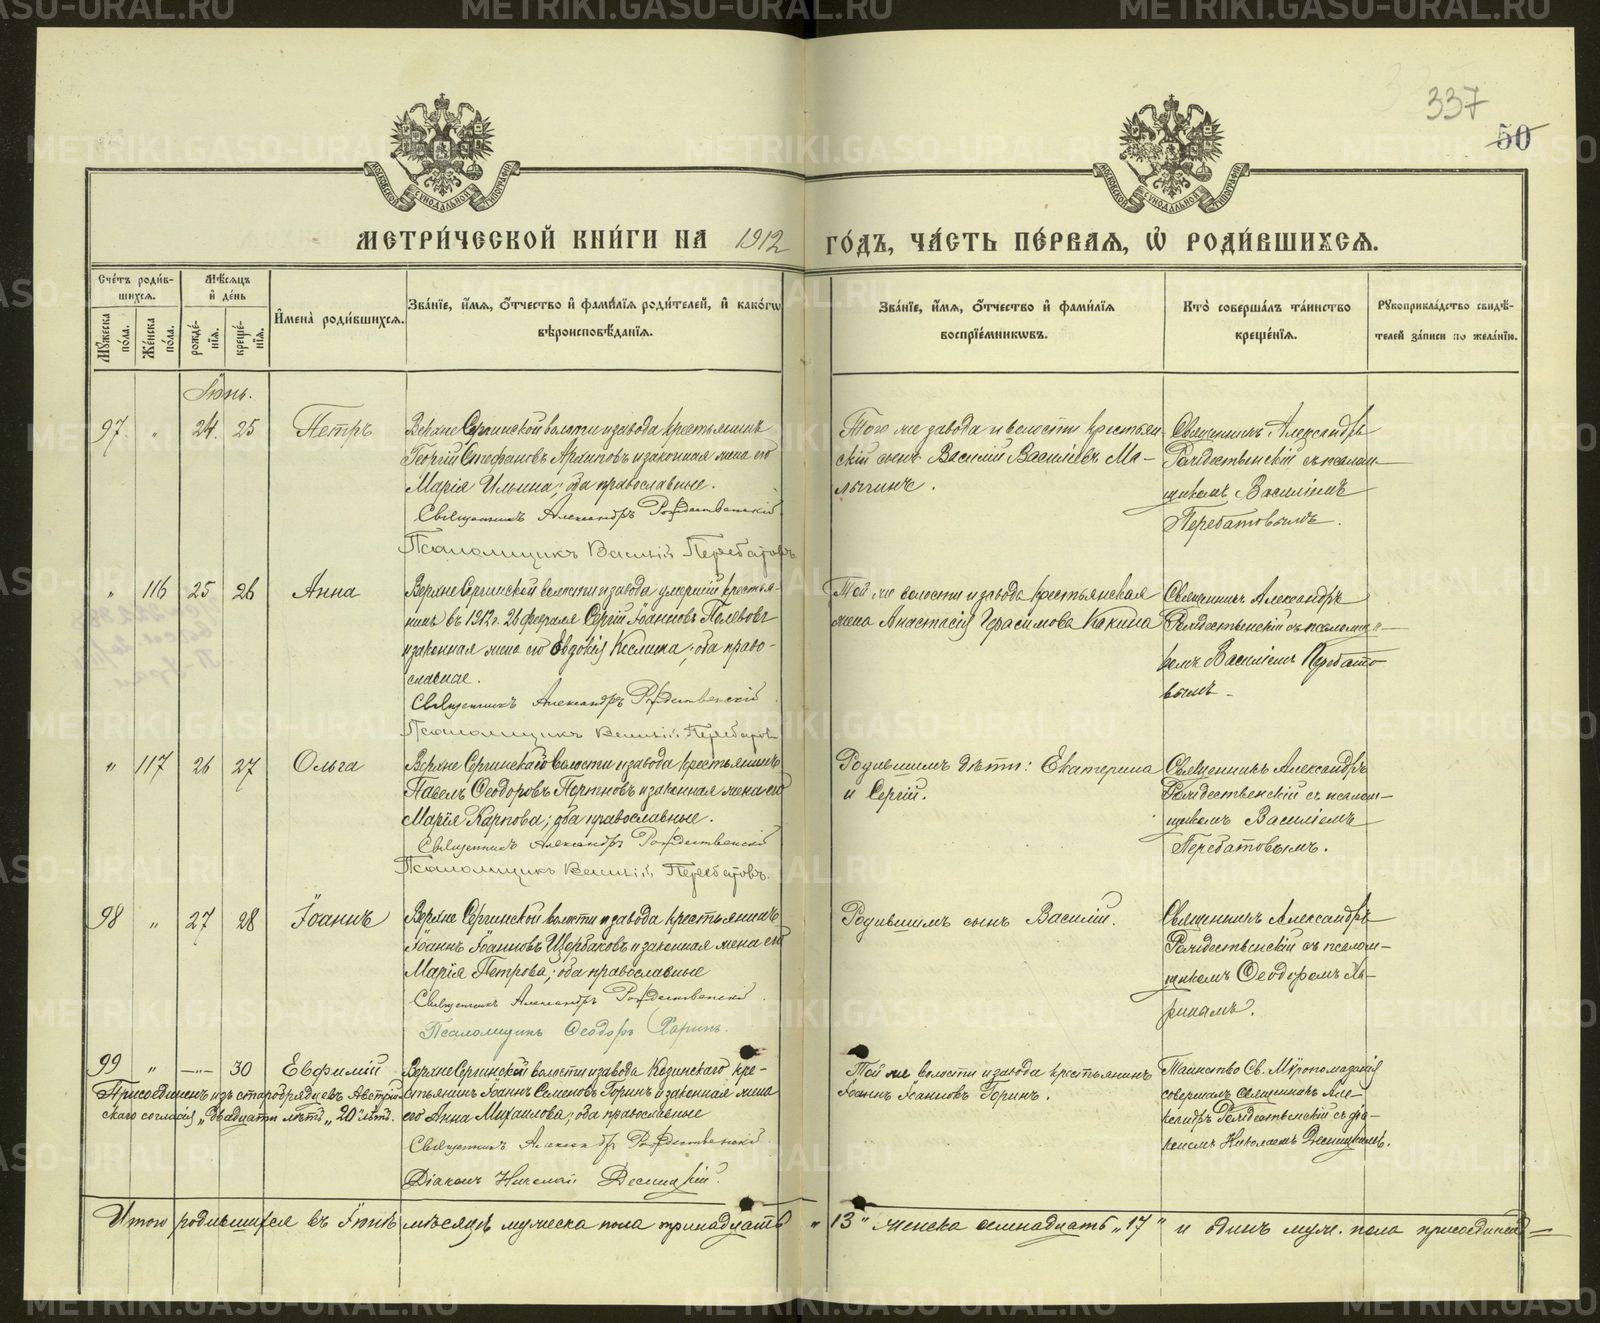 METRIKI.GASO-URAL.RU
337
50
МОСКОВСКОЙ СѴНОДАЛЬНОЙ ТИПОГРАФІИ
МОСКОВСКОЙ СѴНОДАЛЬНОЙ ТИПОГРАФІИ
МЕТРИ́ЧЕСКОЙ КНИ́ГИ НА 1912 ГО́ДЪ, ЧА́СТЬ ПЕ́РВАЯ, Ѡ҆ РОДИ́ВШИХСѦ.
Сче́тъ роди́в-
шихсѧ.
Мꙋ́жеска по́ла.
Же́нска по́ла.
Мѣ́сѧцъ
и҆ де́нь
рожде́-
нїѧ.
креще́-
нїѧ.
И҆мена̀ роди́вшихсѧ.
Зва́нїе, и҆́мѧ, ѻ҆́тчество и҆ фами́лїѧ роди́телей, и҆ како́гѡ
вѣроисповѣ́данїѧ.
Зва́нїе, и҆́мѧ, ѻ҆́тчество и҆ фами́лїѧ
воспрїе́мникѡвъ.
Кто̀ соверша́лъ та́инство
креще́нїѧ.
Рꙋкоприкла́дство свидѣ́-
телей за́писи по жела́нїю.
Іюнь.
97 " 24. 25 Петръ
Верхне Сергинской волости и завода крестьянинъ
Георгій Стефановъ Архиповъ и законная жена его
Марія Ильина; оба православные.
Священникъ Александръ Рождественскій
Псаломщикъ Василій Перебатовъ
Того же завода и волости крестьян
скій сынъ Василій Василіевъ Ма-
лыгинъ.
Священникъ Александръ
Рождественскій съ псалом-
щикомъ Василіемъ
Перебатовымъ.
" 116 25 26 Анна
Верхне Сергинской волости и завода умершій крестья-
нинъ въ 1912 г. 26 февраля Сергій Іоанновъ Полевовъ
и законная жена его Евдокія; оба право-
славные.
Священникъ Александръ Рождественскій
Псаломщикъ Василій Перебатов
Той же волости и завода крестьянская
жена Анастасія Герасимова Какина
Священникъ Александръ
Рождественскій съ псаломщи-
комъ Василіемъ Перебато-
вымъ.
" 117 26 27 Ольга
Верхне Сергинскаго волости и завода крестьянинъ
Павелъ Ѳеодоровъ Портновъ и законная жена его
Марія Карпова; оба православные.
Священникъ Александръ Рождественскій
Псаломщикъ Василій Перебатовъ.
Родившимъ дѣти: Екатерина
и Сергій.
Священникъ Александръ
Рождественскій съ псалом-
щикомъ Василіемъ
Перебатовымъ.
98 " 27 28 Іоаннъ
Верхне Сергинской волости и завода крестьянинъ
Іоаннъ Іоанновъ Щербаковъ и законная жена его
Марія Петрова; оба православные
Священникъ Александръ Рождественскій
Псаломщикъ Ѳеодоръ Ларинъ.
Родившимъ сынъ Василій.
Священникъ Александръ
Рождественскій съ псалом-
щикомъ Ѳеодоромъ Ла-
ринымъ.
99 " —"— 30 Евфимій
Присоединенъ изъ старобрядцевъ Австрій-
скаго согласія, "Двадцати лѣтъ" 20 лѣтъ.
Верхне Сергинской волости и завода Козинскаго кре-
стьянинъ Іоаннъ Семеновъ Горинъ и законная жена
его Анна Михаилова; оба православные
Священникъ Александръ Рождественскій
Діаконъ Николай Десницкій.
Той же волости и завода крестьянинъ
Іоаннъ Іоанновъ Горинъ.
Таинство Св. Мѵропомазанія
совершалъ священникъ Але-
ксандръ Рождественскій съ діа-
кономъ Николаемъ Десницкимъ.
Итого родившихся въ Іюнѣ мѣсяцѣ мужеска пола тринадцать "13" женска семнадцать "17" и одинъ муж. пола присоединен